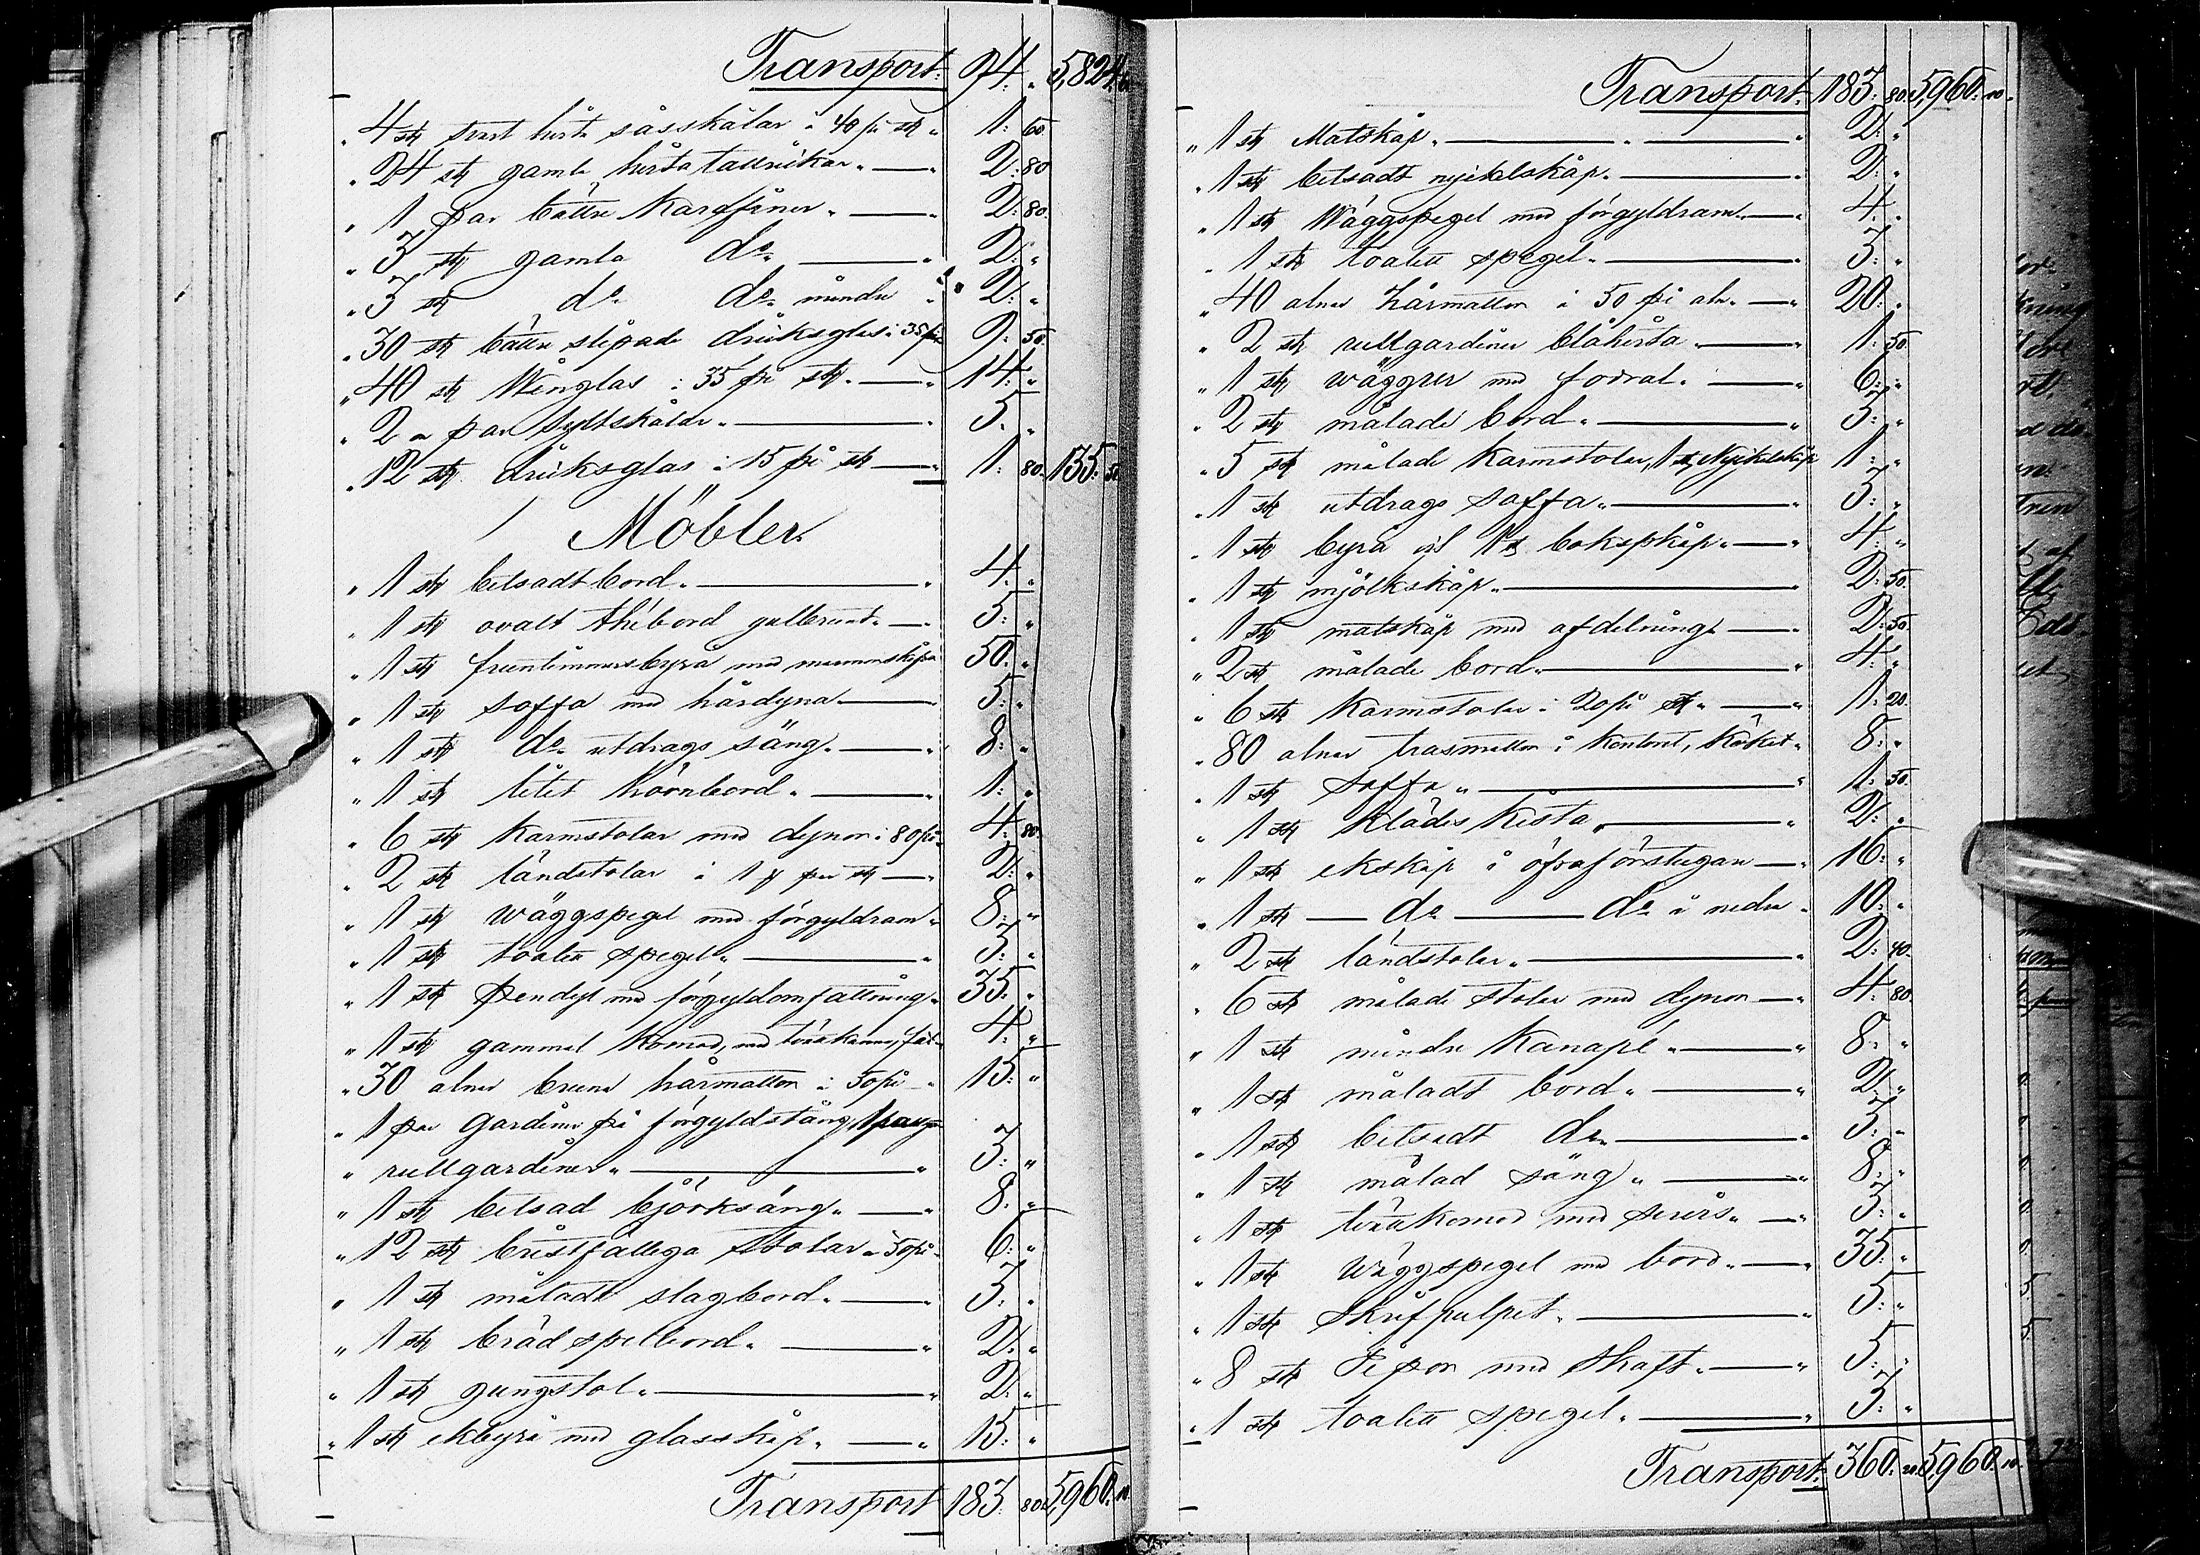 Transport: 94. " 5,824. 60
" 4 st svart hvita såsskålar à 40 pr st " 1: 60
" 24 st gamla hvita tallrikar " 2: 80
" 1 par bättre Karaffiner " 2: 80
" 3 st gamla do " 2: "
" 3 st do do mindre " 2: "
" 30 st bättre slipade dricksglas à 35 pr 9: 50
" 40 st Winglas à 35 pr st. " 14: "
" 2 par syltskålar " 5. "
" 12 st dricksglas à 15 pr st " 1: 80. 135: 50
Möbler
" 1 st betsadt bord. " 4. "
" 1 st ovalt thébord " 5: "
" 1 st fruntimmersbyrå med 50: "
" 1 st soffa med hårdyna 5: "
" 1 st do utdrags säng. " 8: "
" 1 st litet hörnbord. " 1. "
" 6 st karmstolar med dynor à 80 pr 4: 80
" 2 st ländstolar à 1 per st " 2: "
" 1 st wäggspegel med förgyld ram " 8: "
" 1 st toalett spegel " 3: "
" 1 st pendyl med förgyld omfattning " 35: "
" 1 st gammal Komod, med 4: "
" 30 alnar bruna hårmattor à 50 pr " 15: "
" 1 par Gardiner på förgyld stång, 1 par
" rullgardiner " 3: "
" 1 st betsad björksäng " 8: "
" 12 st bristfälliga stolar à 50 pr 6: "
" 1 st måladt slagbord. " 3: "
" 1 st brädspelbord. " 2: "
" 1 st gungstol " 2: "
" 1 st ekbyrå med glasskåp. " 15: "
Transport 183: 80. 5,960. 10
Transport: 183: 80. 5,960: 10.
" 1 st Matskåp. " 2: "
" 1 st betsadt nyckelskåp. " 2: "
" 1 st Wäggspegel med förgyld ram " 4. "
" 1 st toalett spegel " 3: "
" 40 alnar hårmattor à 50 pr aln. " 20: "
" 2 st rullgardiner blåhvita " 1: 50
" 1 st wäggur med fodral. " 6: "
" 2 st målade bord. " 3: "
" 5 st målade Karmstolar, 1 st Nyckelskåp 1: "
" 1 st utdrags soffa " 3: "
" 1 st byrå 1 st bokskåp " 4: "
" 1 st mjölkskåp. " 2: 50.
" 1 st matskåp med afdelning " 2: 50.
" 2 st målade bord " 4: "
" 6 st Karmstolar à 20 pr st " 1: 20.
" 80 alnar trasmattor i Kontoret, Köket " 8: "
" 1 st Soffa " 1: 50.
" 1 st Klädes Kista " 2: "
" 1 st ekskåp i öfra förstugan " 16: "
" 1 st do do i nedre " 10: "
" 2 st ländstolar " 2: 40.
" 6 st målade stolar med dynor " 4: 80
" 1 st mindre Kanapé " 8: "
" 1 st måladt bord " 2: "
" 1 st betsadt do " 3: "
" 1 st målad säng " 8: "
" 1 st tvättkomod med servis " 3: "
" 1 st wäggspegel med bord. " 35: "
" 1 st Skrifpulpet. " 5: "
" 8 st Pipor med skaft. " 5: "
" 1 st toalett spegel. " 3: "
Transport: 360: 20. 5,960: 10